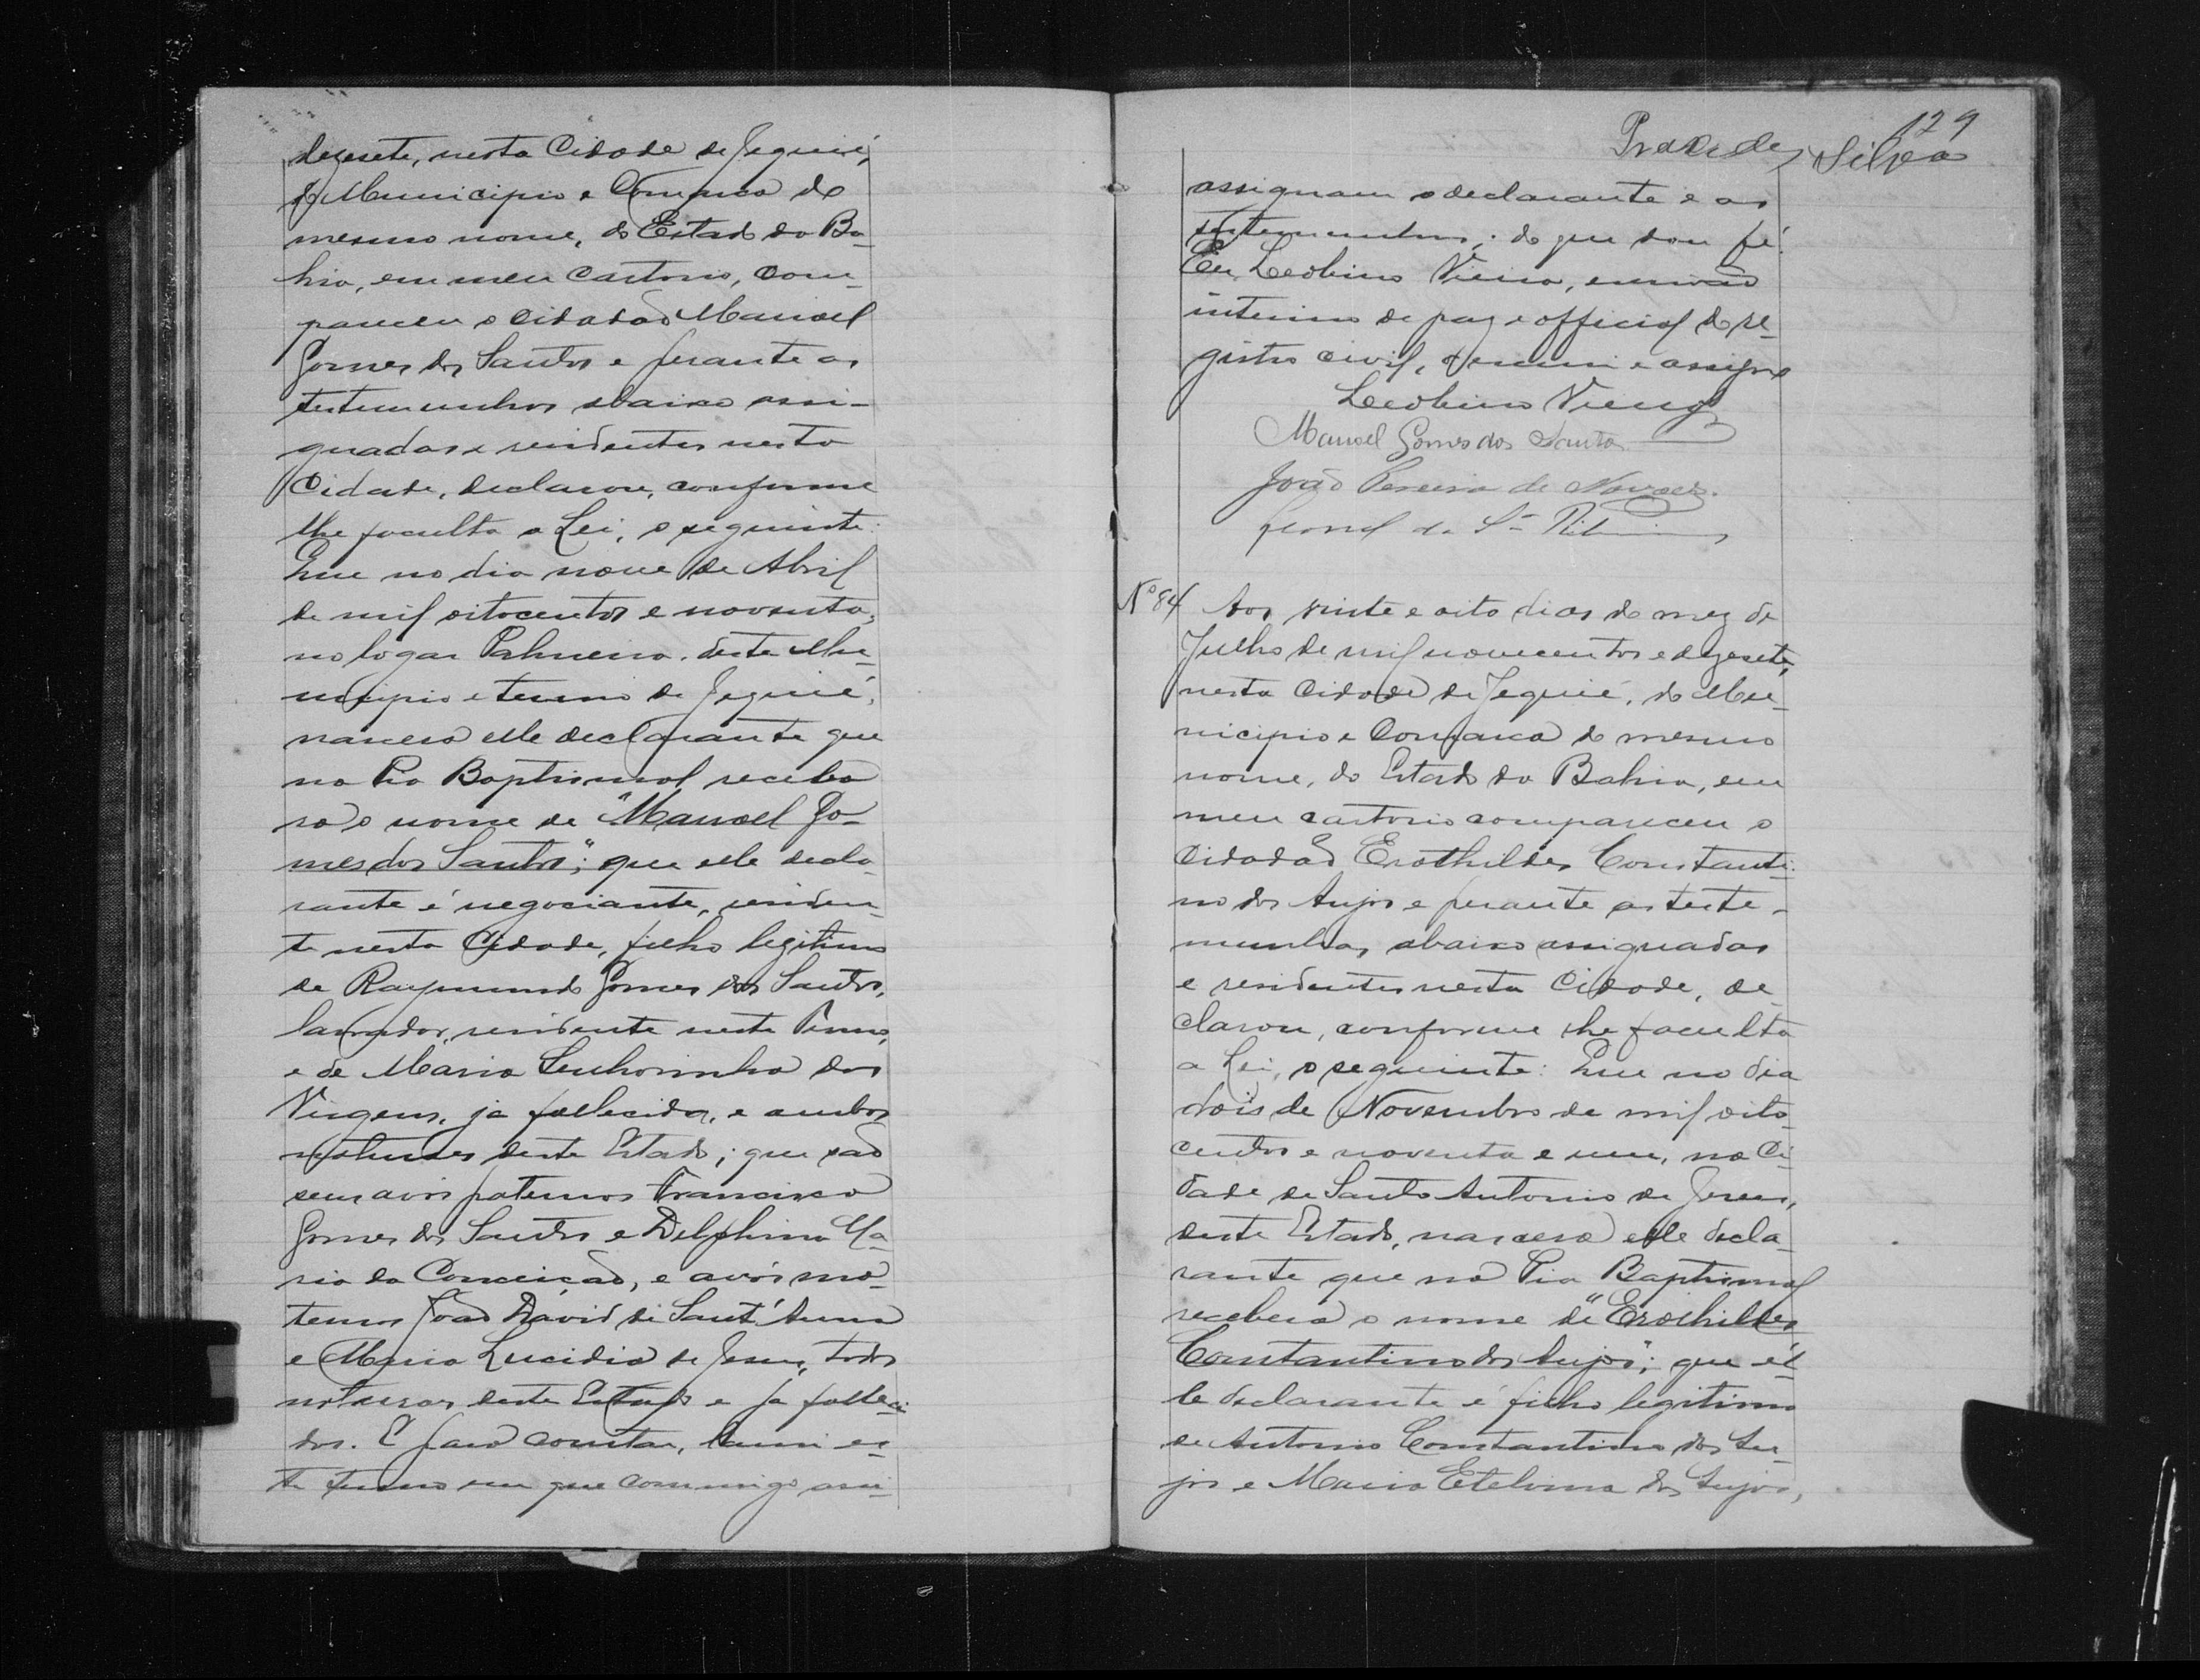 dezesete, nesta Cidade de Jequié,
do Municipio e Comarca do
mesmo nome, do Estado da Ba-
hia, em meu cartorio, com-
pareceu o cidadão Manoel
Gomes dos Santos e perante as
testemunhas abaixo assi-
gnadas e residentes nesta
Cidade, declarou, conforme
lhe faculta a Lei, o seguinte:
Que no dia nove de Abril
de mil oitocentos e noventa,
no logar Palmeira, deste Mu-
nicipio e termo de Jequié,
nascera elle declarante que
na Pia Baptismal recebe-
ra o nome de "Manoel Go-
mes dos Santos"; que elle decla-
rante é negociante, residen-
te nesta Cidade, filho legitimo
de Raymundo Gomes dos Santos,
lavrador, residente neste Termo,
e de Maria Senhorinha das
Virgens, já fallecida, e ambos
naturaes deste Estado; que são
seus avós paternos Francisco
Gomes dos Santos e Delphina Ma-
ria da Conceição, e avós ma-
ternos João David de Sant'Anna
e Maria Lucidia de Jesus, todos
naturaes deste Estado e já falleci-
dos. E para constar, lavrei es-
te termo em que commigo assi-
129
Silva
assignam o declarante e as
testemunhas; do que dou fé.
Eu Leobino Vieira, escrivão
interino de paz e official do re-
gistro civil, escrevi e assigno
Leobino Vieira
Manoel Gomes dos Santos
João Pereira de Novaes.
Leonel da S.ª Ribeiro
Nº 84 Aos vinte e oito dias do mez de
Julho de mil novecentos e dezesete,
nesta Cidade de Jequié, do Mu-
nicipio e Comarca do mesmo
nome, do Estado da Bahia, em
meu cartorio compareceu o
cidadão Erothildes Constanti-
no dos Anjos e perante as teste-
munhas abaixo assignadas
e residentes nesta Cidade, de-
clarou, conforme lhe faculta
a Lei, o seguinte: Que no dia
dois de Novembro de mil oito-
centos e noventa e um, na Ci-
dade de Santo Antonio de Jesus,
deste Estado, nascera elle decla-
rante que na Pia Baptismal
recebera o nome de "Erothildes
Constantino dos Anjos"; que el-
le declarante é filho legitimo
de Antonio Constantino dos An-
jos e Maria Etelvina dos Anjos,